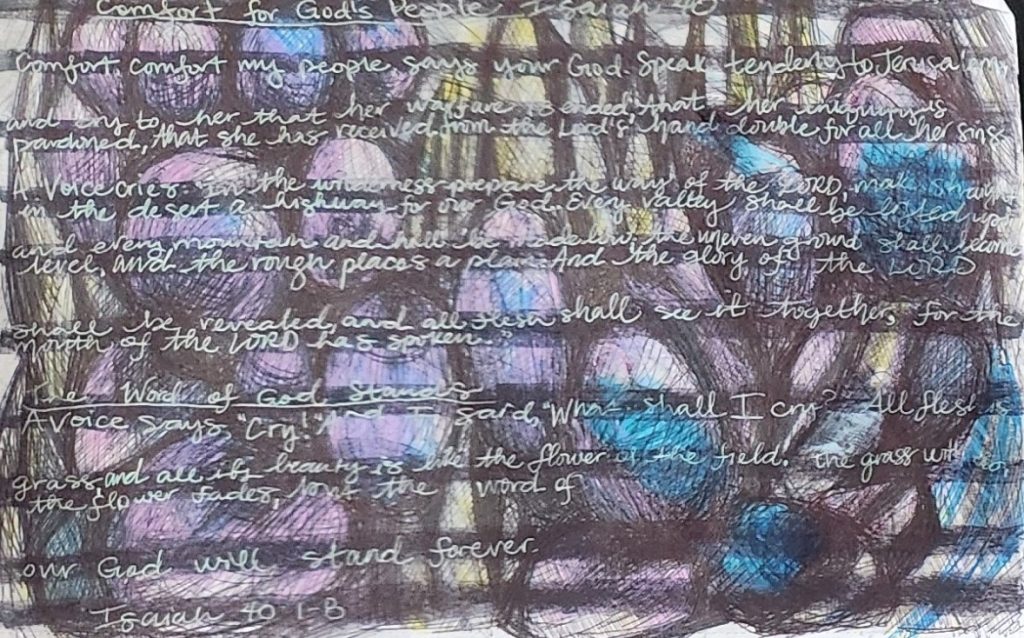 Comfort for God's People Isaiah 40
Comfort, comfort my people, says your God. Speak tenderly to Jerusalem,
and cry to her that her warfare is ended, that her iniquity is
pardoned, that she has received from the Lord's hand double for all her sins.
A Voice cries. In the wilderness prepare the way of the LORD, make straight
in the desert a highway for our God. Every valley shall be lifted up
and every mountain and hill be made low, the uneven ground shall become
level, and the rough places a plain. And the glory of the LORD
shall be revealed, and all flesh shall see it together, for the
mouth of the LORD has spoken"
The Word of God Stands
A Voice says, "Cry!" And I said, "What shall I cry?" All flesh is
grass, and all its beauty is like the flower of the field. The grass
the flower fades, but the word of
our God will stand forever.
Isaiah 40 1-8